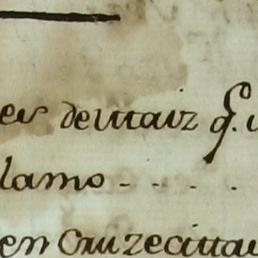 es de maiz q.
lamo - - - -
en Cruzecitta